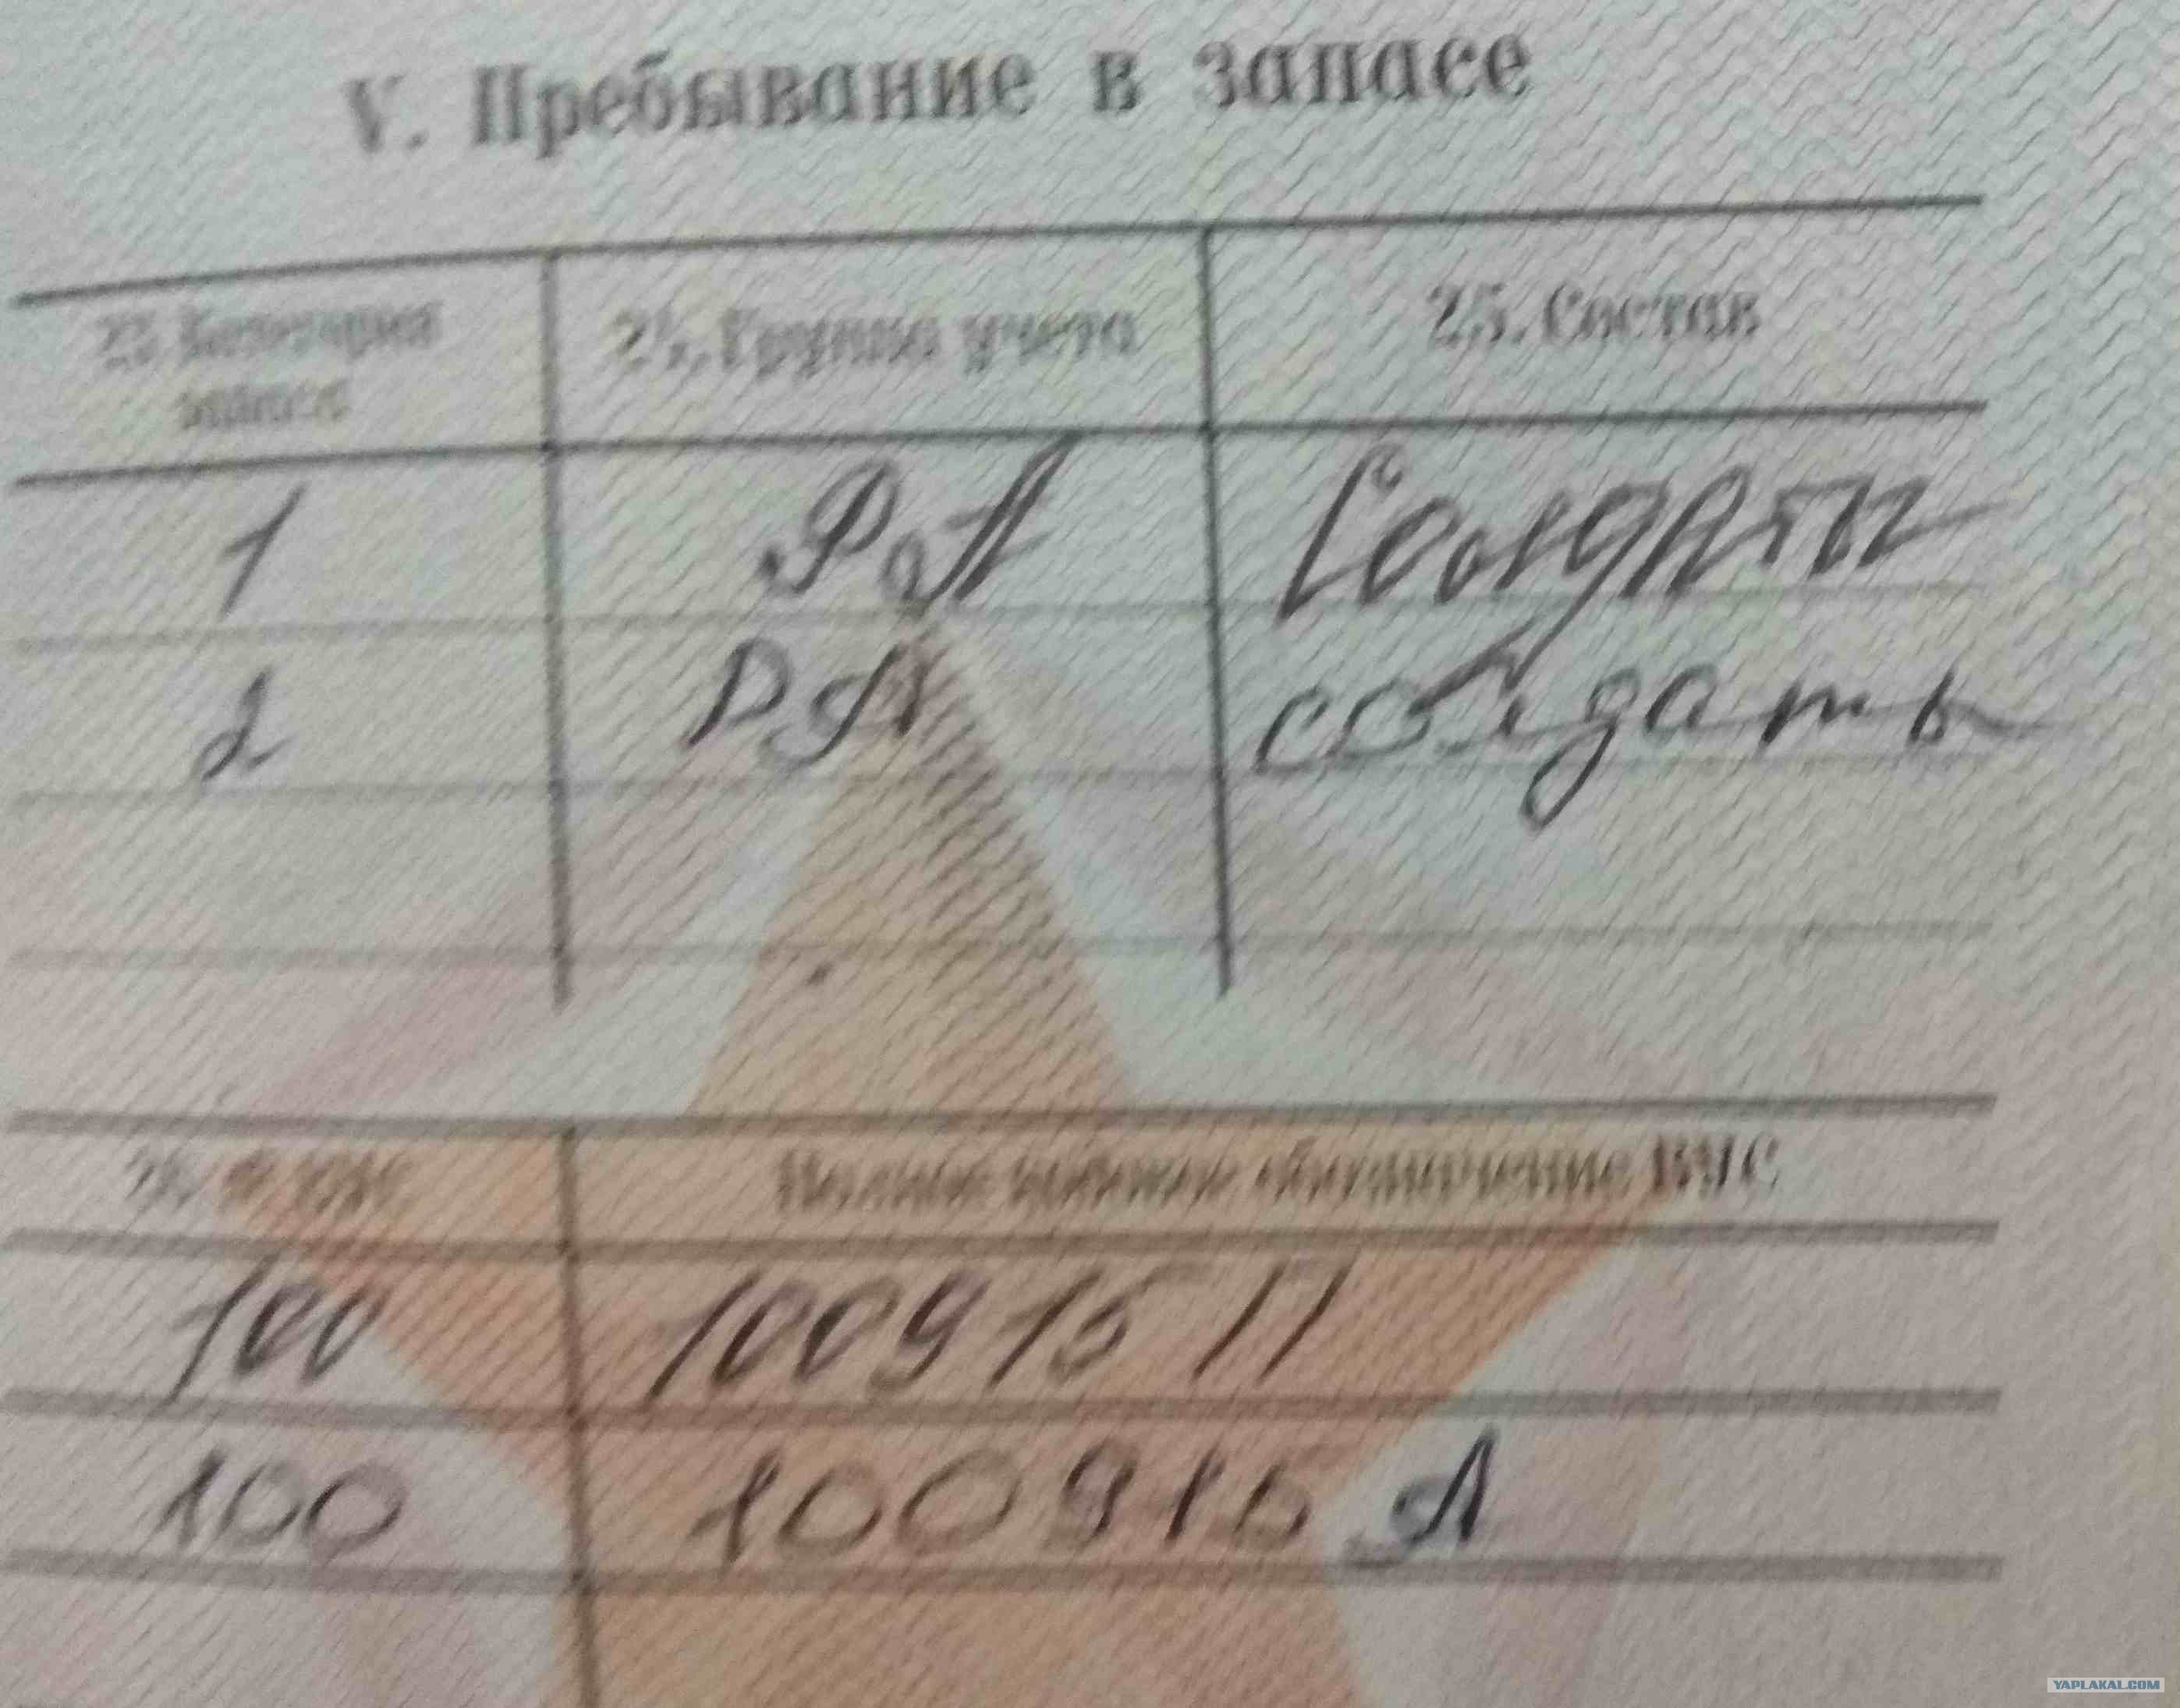 V. Пребывание в запасе
23. Категория запаса
24. Группа учета
25. Состав
1 РА Солдаты
2 РА солдаты
26. № ВУС
Полное кодовое обозначение ВУС
100 100915 П
100 100915 А
YAPLAKAL.COM